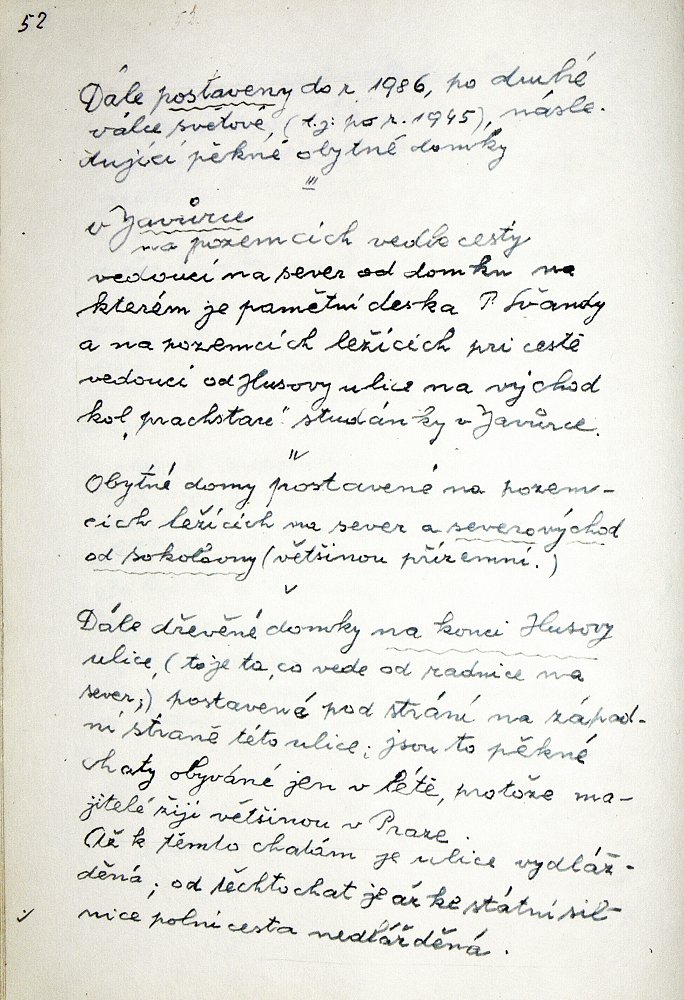 52
Dále postaveny do r 1986, po druhé
válce světové, (t.j: po r. 1945), násle-
dující pěkné obytné domky
III
v Javůrce
na pozemcích vedle cesty
vedoucí na sever od domku na
kterém je pamětní deska P. Švandy
a na pozemcích ležících pri cestě
vedoucí od Husovy ulice na východ
kol "prachstaré" studánky v Javůrce.
IV
Obytné domy postavené na pozem-
cích ležících na sever a severovýchod
od sokolovny (většinou přízemní.)
V
Dále dřevěné domky na konci Husovy
ulice, (to je ta, co vede od radnice na
sever;) postavené pod strání na západ-
ní straně této ulice; jsou to pěkné
chaty obyváné jen v létě, protože ma-
jitelé žijí většinou v Praze.
Až k těmto chatám je ulice vydláž-
děná; od těchto chat je až ke státní sil-
nice polní cesta nedlážděná.